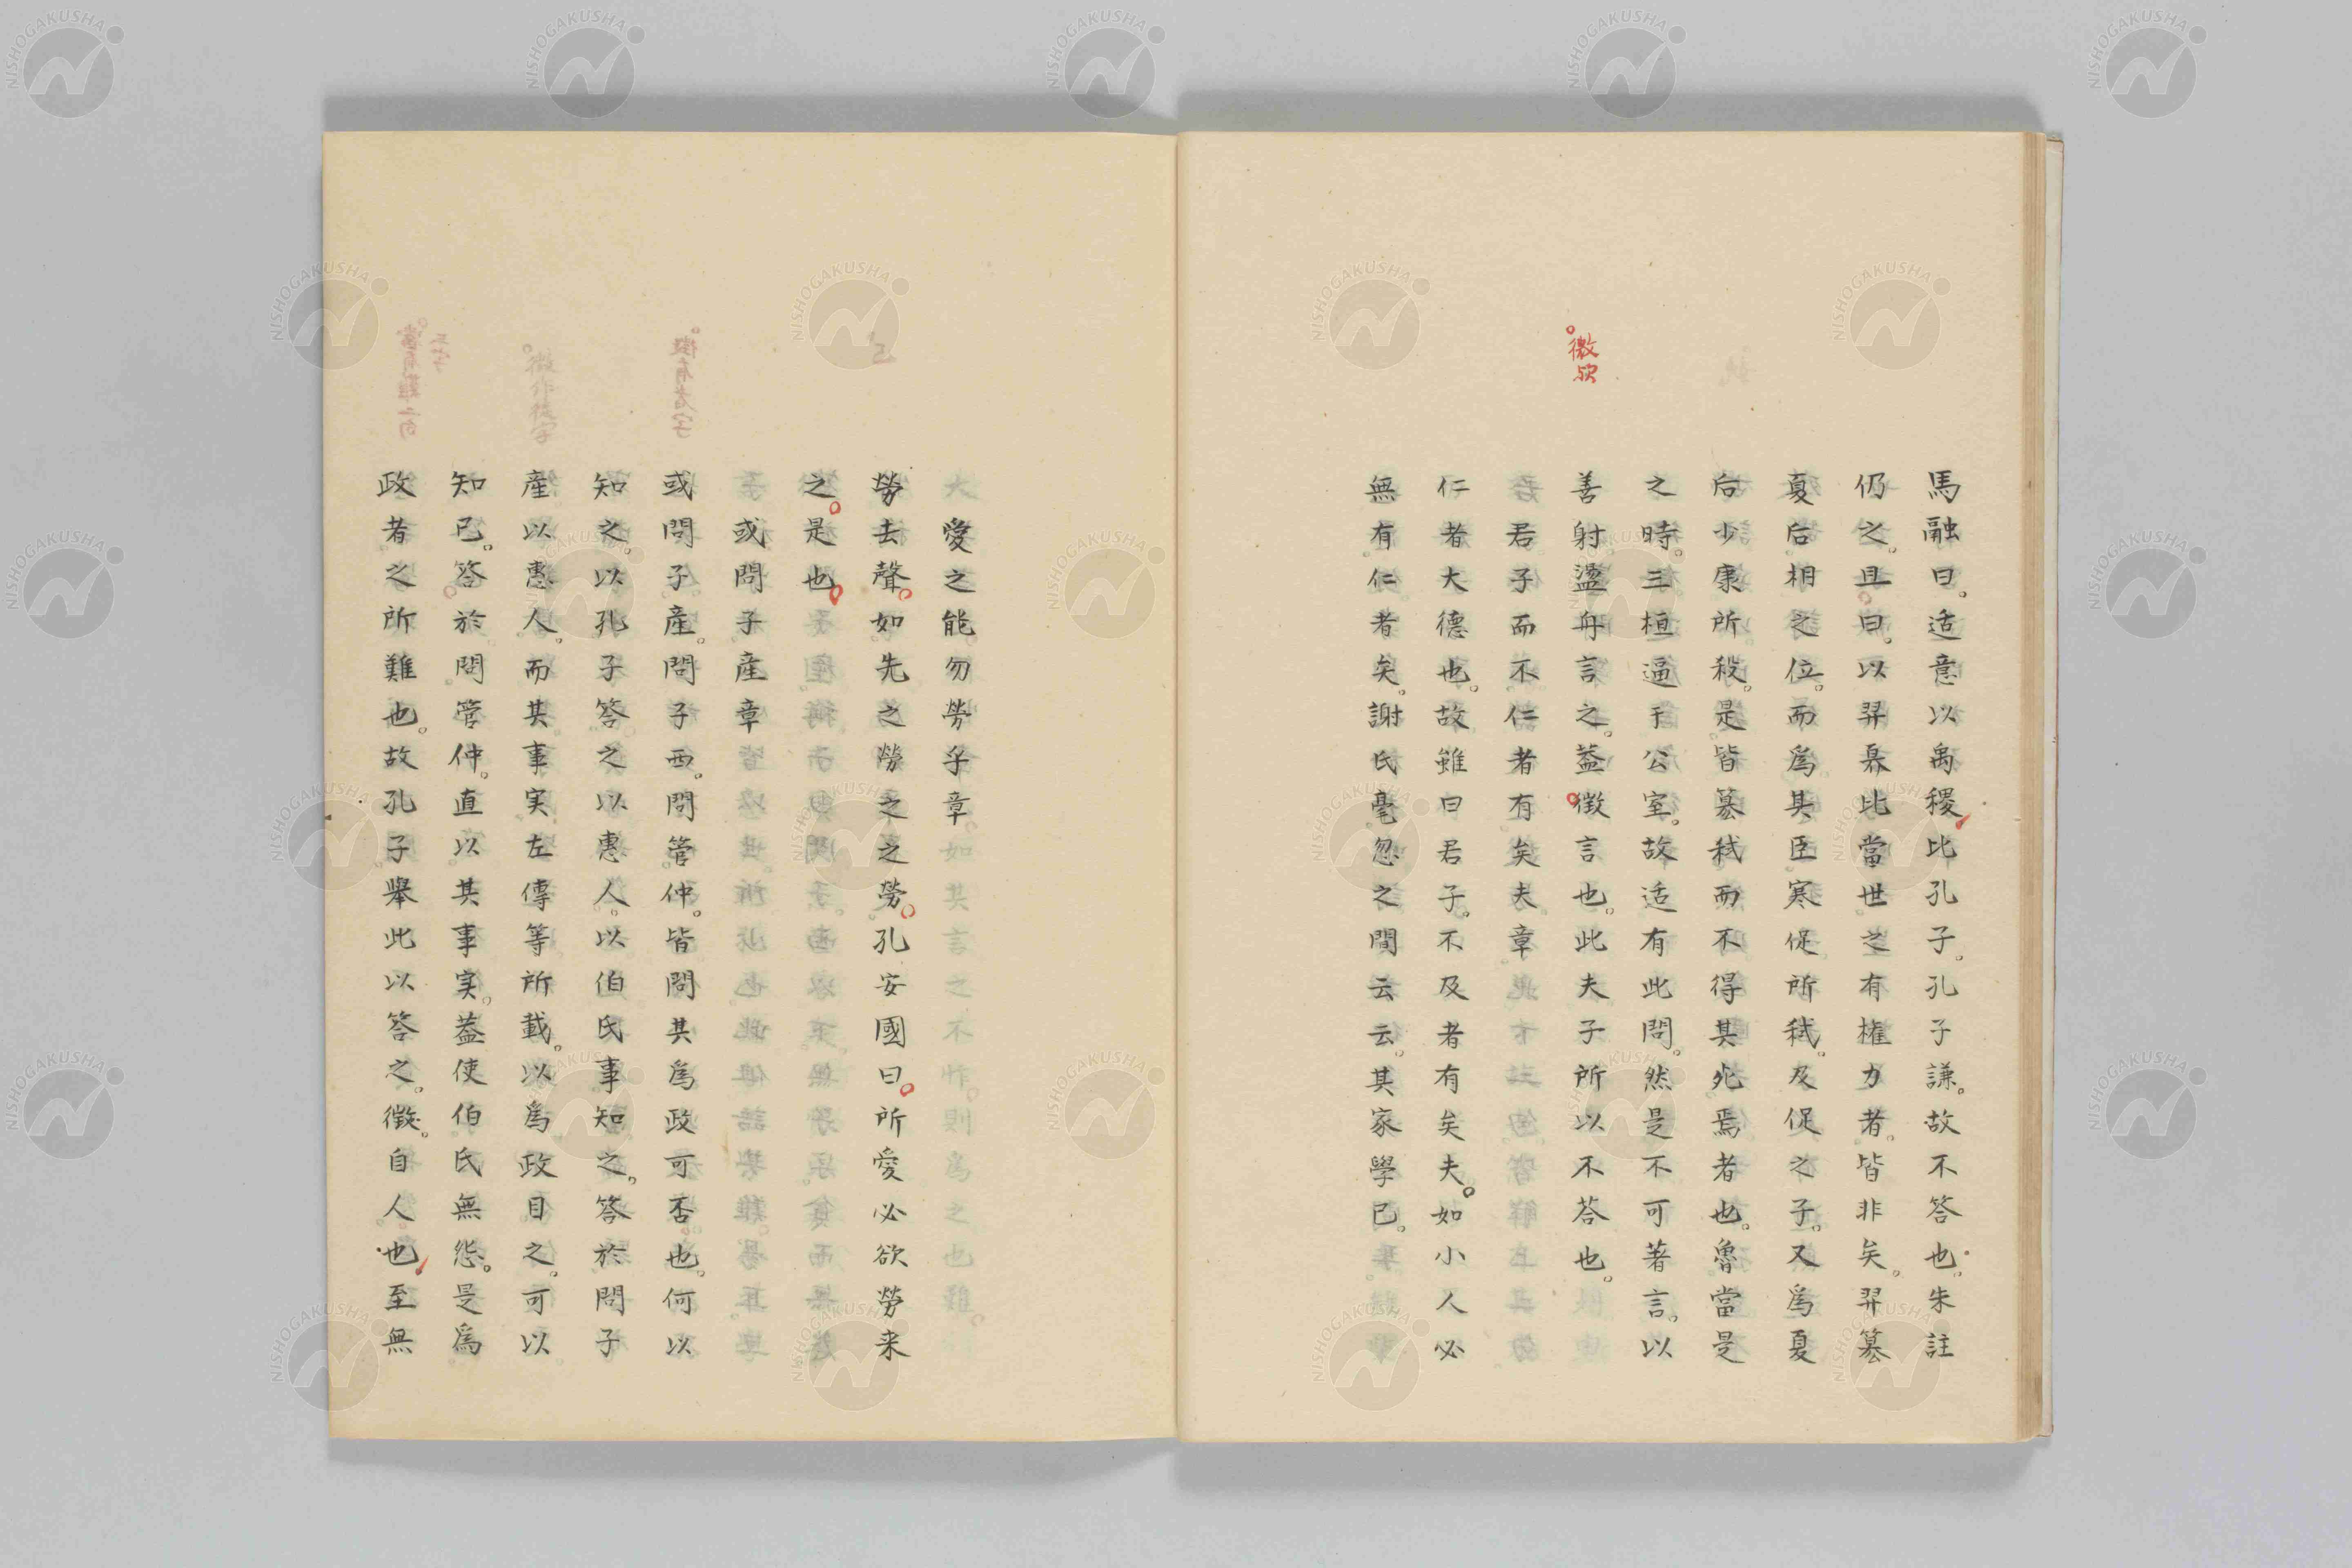 馬融曰。适意以禹稷比孔子。孔子謙。故不答也。朱註
仍之。且曰。以羿奡比當世之有權力者。皆非矣。羿簒
夏后相之位。而爲其臣寒促所弑。及促之子。又爲夏
后少康所殺。是皆簒弑而不得其死焉者也。魯當是
之時。三桓逼于公室。故适有此問。然是不可著言。以
善射盪舟言之。葢徴言也。此夫子所以不荅也。
君子而不仁者有矣夫章
仁者大德也。故雖曰君子。不及者有矣夫。如小人必
無有仁者矣。謝氏毫忽之間云云。其家學已。
徴欤
愛之能勿勞乎章
勞去聲。如先之勞之之勞。孔安國曰。所愛必欲勞来
之。是也。
或問子産章
或問子産。問子西。問管仲。皆問其爲政可否也。何以
知之。以孔子答之以惠人。以伯氏事知之。答於問子
産以惠人。而其事実左傳等所載。以爲政目之。可以
知已。答於問管仲。直以其事実。葢使伯氏無怨。是爲
政者之所難也。故孔子舉此以答之。徴。自人也至無
NISHOGAKUSHA